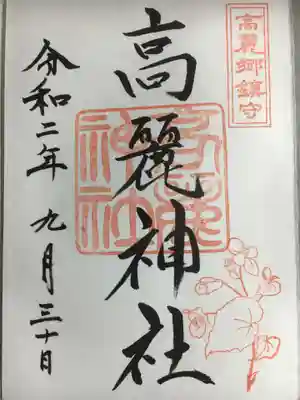 高麗郷鎮守
高麗神社
令和二年 九月三十日